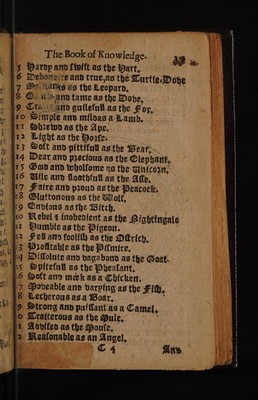 The Book of Knowledge.
5 Hardy and swift as the Hart.
6 Debonaire and true, as the Turtle-Dove
7 as the Leopard.
8 and tame as the Dove.
9 and guilefull as the Fox.
10 Simple and mild as a Lamb.
11 Shrewd as the Ape.
12 Light as the Horse.
13 Soft and pittifull as the Bear.
14 Dear and precious as the Elephant.
15 Good and wholsome as the Unicorn.
16 Vile and slouthfull as the Asse.
17 Faire and proud as the Peacock.
18 Gluttonous as the Wolf.
19 Envious as the Bitch.
20 Rebel & inobedient as the Nightingale
21 Humble as the Pigeon.
22 Fell and foolish as the Ostrich.
23 Profitable as the Pismire.
24 Dissolute and vagabond as the Goat.
25 Spitefull as the Pheasant.
26 Soft and meek as a Chicken.
27 Moveable and varying as the Fish.
28 Lecherous as a Boar.
29 Strong and puissant as a Camel.
30 Traiterous as the Mule.
31 Advised as the Mouse.
32 Reasonable as an Angel.
C 4 And